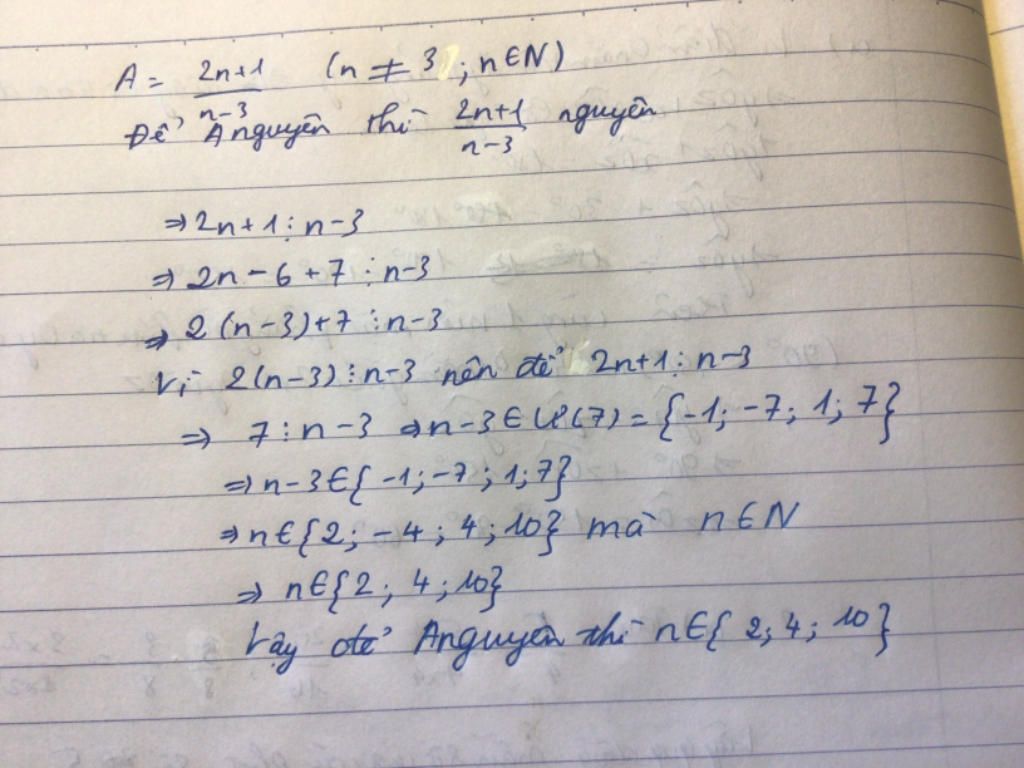 A = \frac{2n+1}{n-3} (n ≠ 3 ; n ∈ N)
Để A nguyên thì \frac{2n+1}{n-3} nguyên
⇒ 2n+1 ⋮ n-3
⇒ 2n - 6 + 7 ⋮ n-3
⇒ 2(n-3)+7 ⋮ n-3
Vì 2(n-3) ⋮ n-3 nên để 2n+1 ⋮ n-3
⇒ 7 ⋮ n-3 ⇒ n-3 ∈ Ư(7) = {-1; -7; 1; 7}
⇒ n-3 ∈ {-1; -7; 1; 7}
⇒ n ∈ {2; -4; 4; 10} mà n ∈ N
⇒ n ∈ {2; 4; 10}
Vậy để A nguyên thì n ∈ {2; 4; 10}